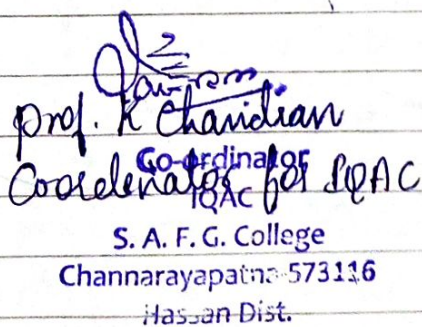 Prof. K Chandian
Co-ordinator
Coordenator for IQAC
IQAC
S. A. F. G. College
Channarayapatna-573116
Hassan Dist.